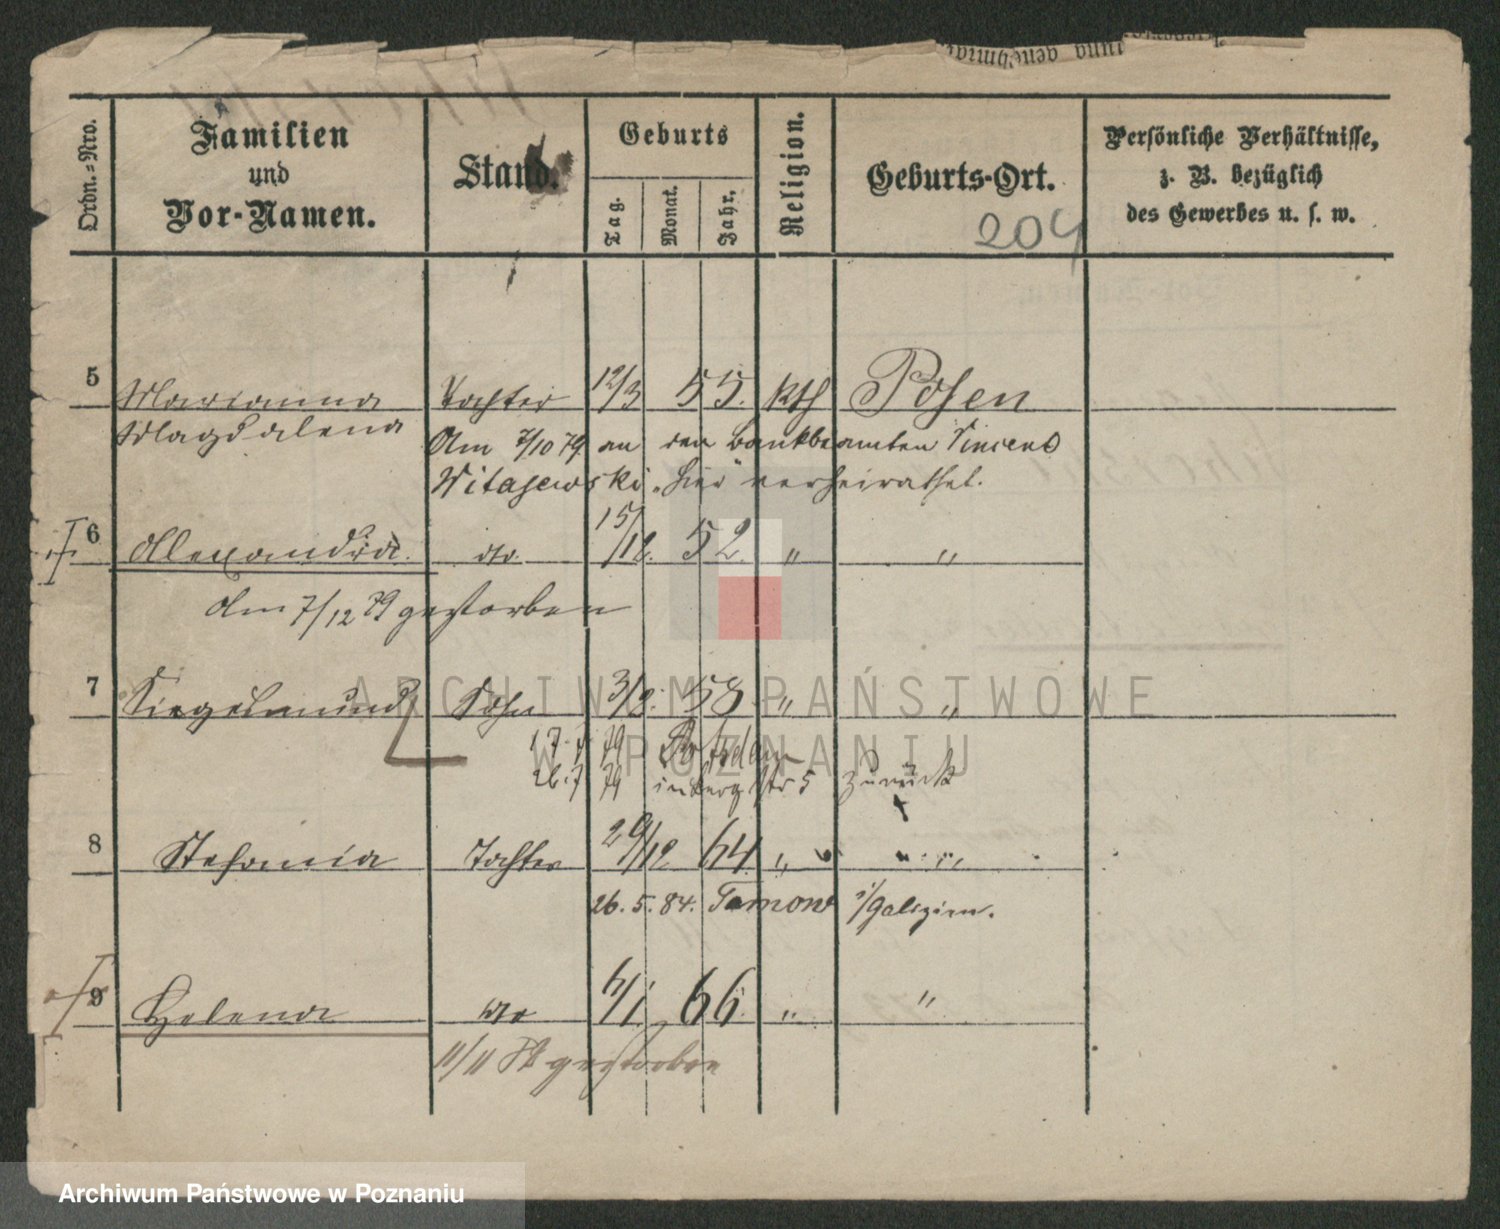 Ordn.=Nro.
Familien
und
Vor-Namen.
Stand.
Geburts
Tag.
Monat.
Jahr.
Religion.
Geburts-Ort.
204
Persönliche Verhältnisse,
z. B. bezüglich
des Gewerbes u. s. w.
5 Marianna Tochter 12/3 55. kth Posen
Magdalena
Am 7/10 79 an den Bankbeamten Vincent
Witajewski "hier" verheirathet.
6 Alexandra do. 15/12. 52. " "
Am 7/12 79 gestorben
7 Siegismund Sohn 3/2. 58 " "
17 79 Potsdam
26.7 79 str 5 zurück
8 Stefania Tochter 29/12 64. " "
26. 5. 84. Tarnow i/Galizien.
9 Helena do 6/1. 66. " "
11/11 gestorben
ARCHIWUM PAŃSTWOWE
W POZNANIU
Archiwum Państwowe w Poznaniu